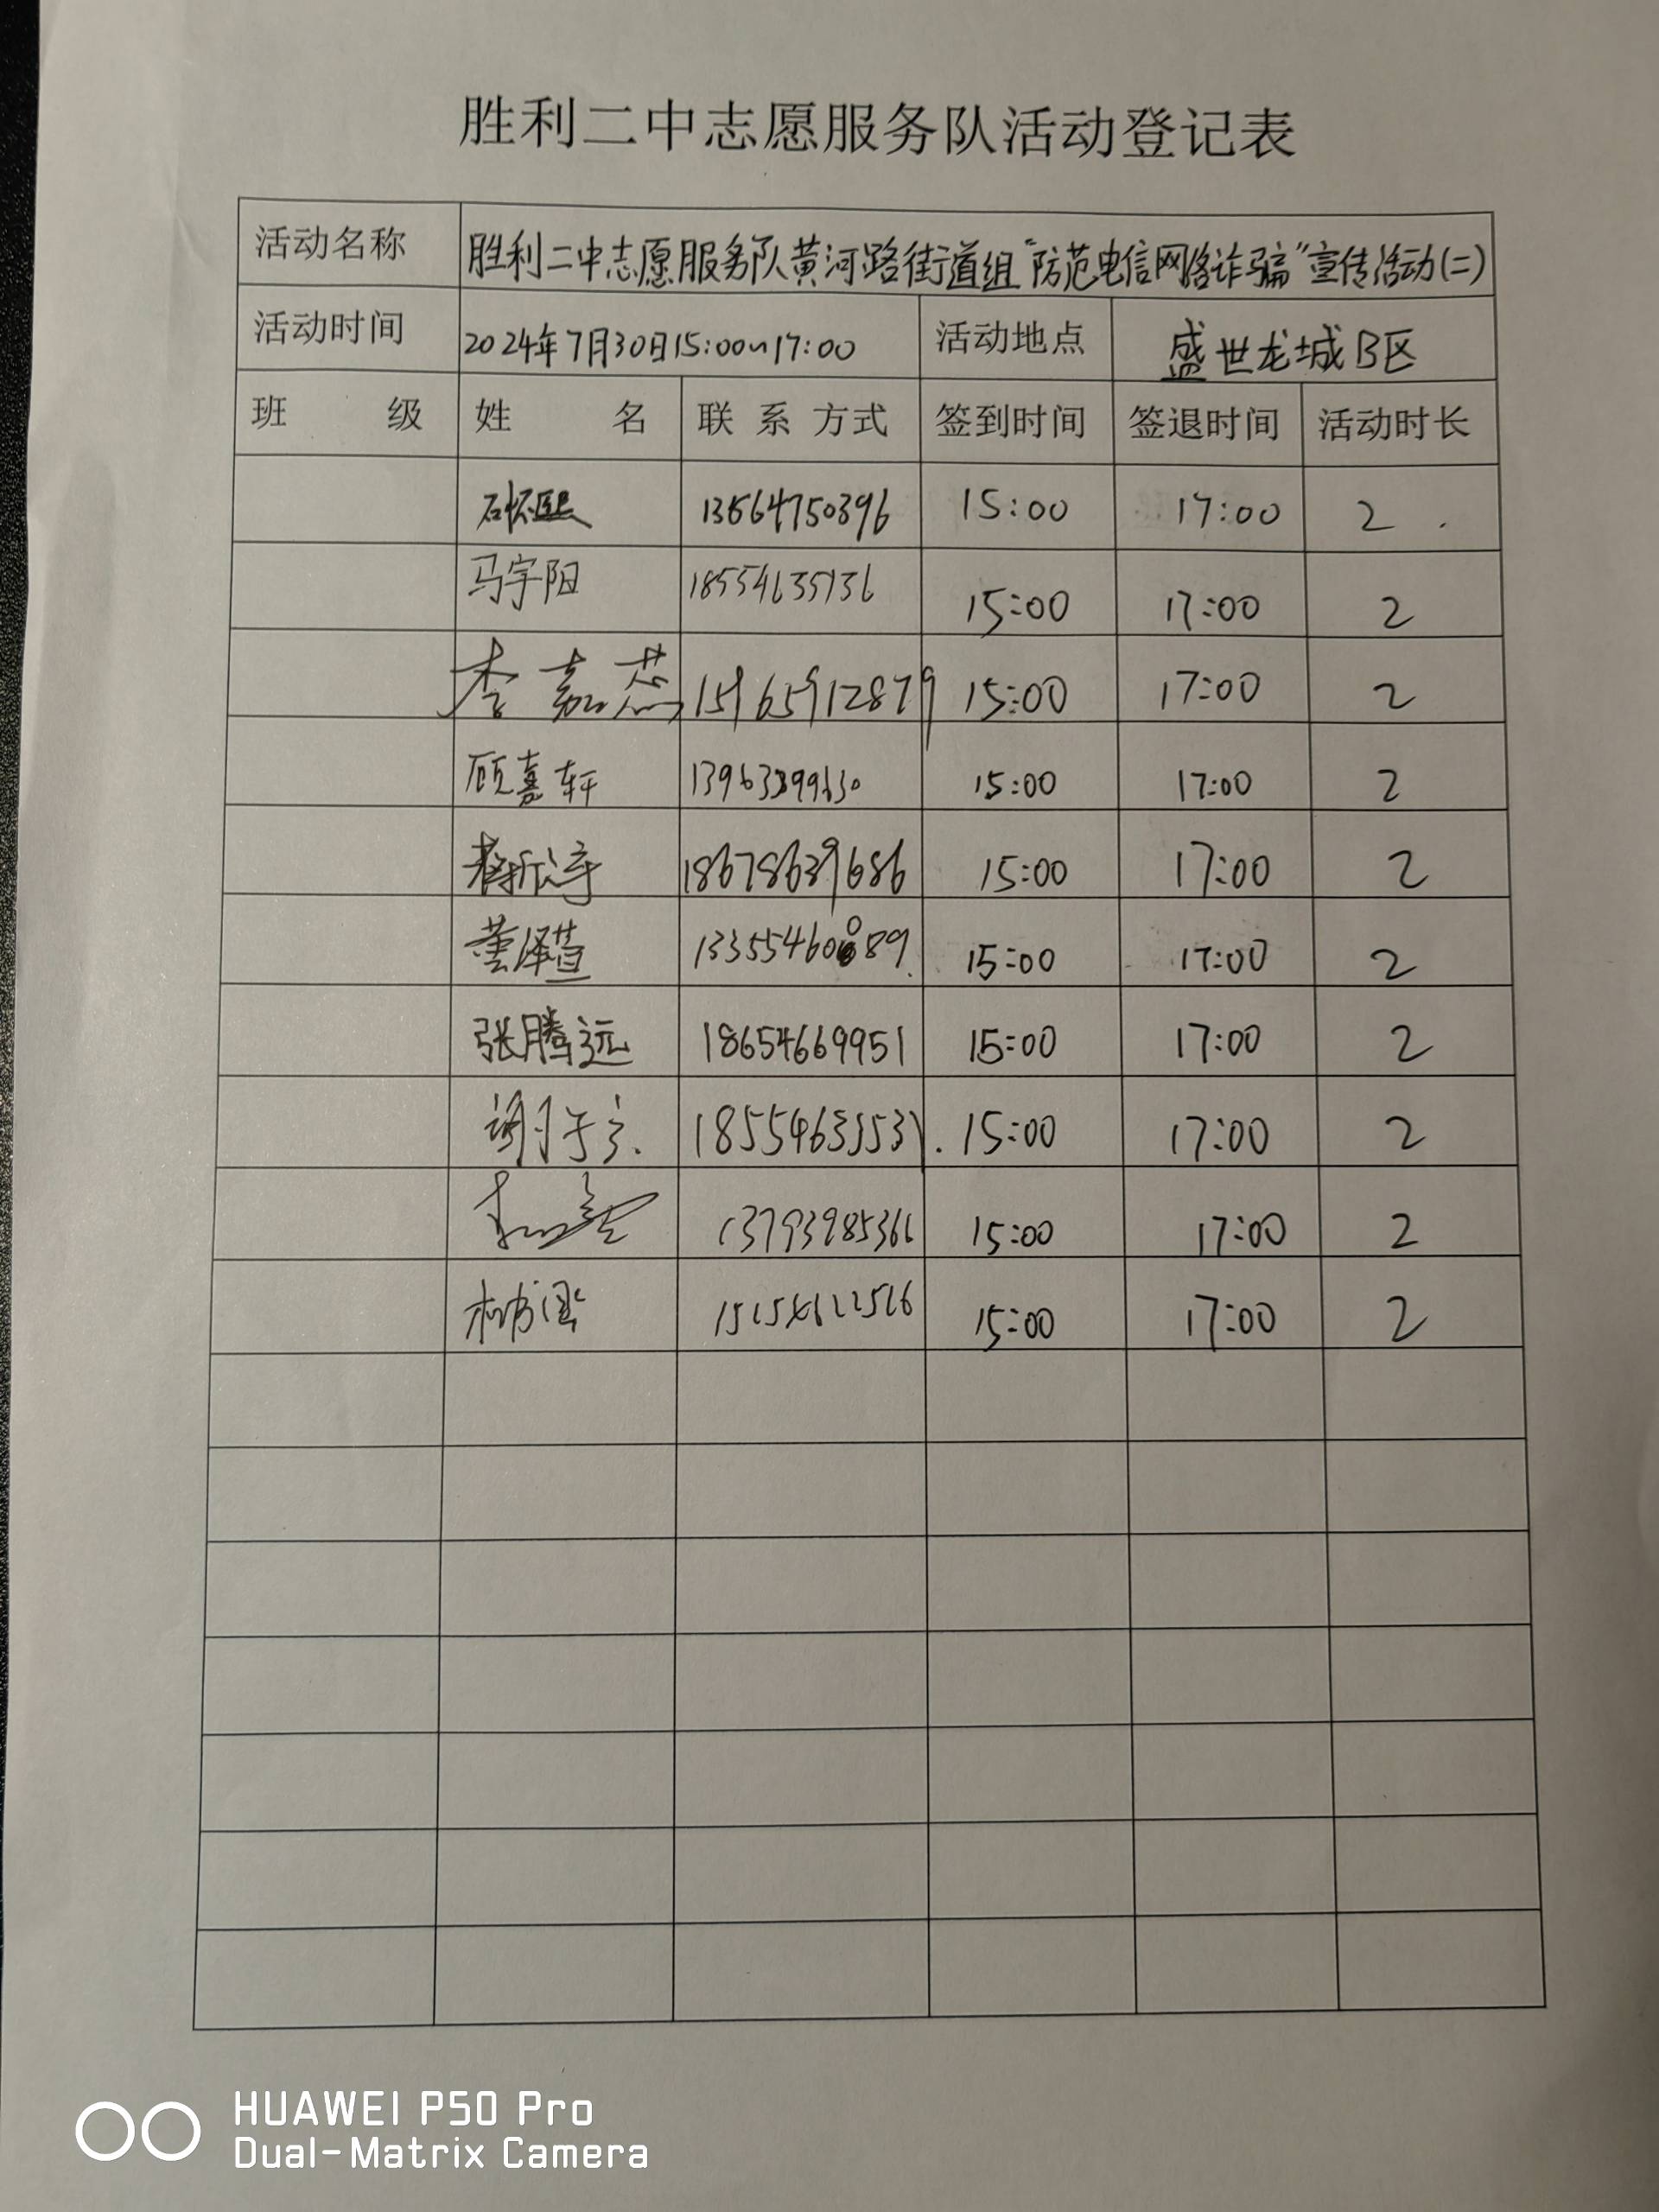 胜利二中志愿服务队活动登记表
活动名称 胜利二中志愿服务队黄河路街道组“防范电信网络诈骗”宣传活动(二)
活动时间 2024年7月30日15:00~17:00 活动地点 盛世龙城B区
班 级 姓 名 联 系 方式 签到时间 签退时间 活动时长
石怀熙 13564750396 15:00 17:00 2
马宇阳 18554635136 15:00 17:00 2
李嘉蕊 15965912879 15:00 17:00 2
顾嘉轩 13963399630 15:00 17:00 2
18678639686 15:00 17:00 2
董泽萱 15:00 17:00 2
张腾远 18654669951 15:00 17:00 2
15:00 17:00 2
13793985366 15:00 17:00 2
15:00 17:00 2
HUAWEI P50 Pro
Dual-Matrix Camera